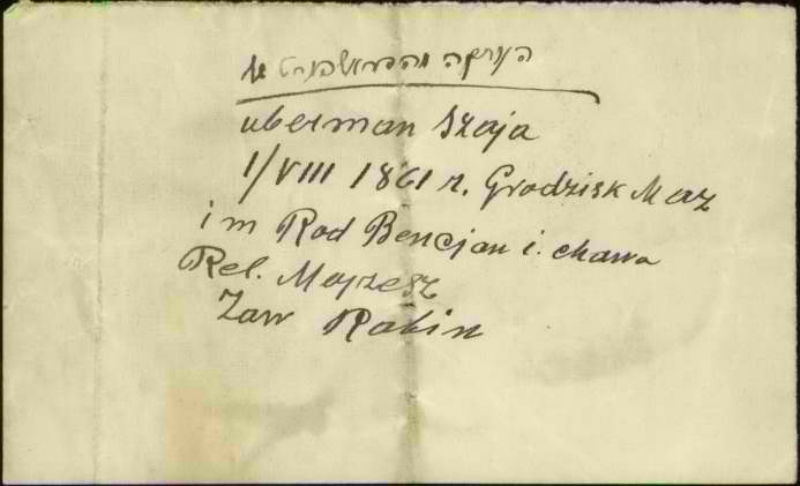 uberman Szaja
1/VIII 1861 r. Grodzisk Maz
im Rod Bencjan i. chawa
Rel. Mojzesz
Zaw Rabin